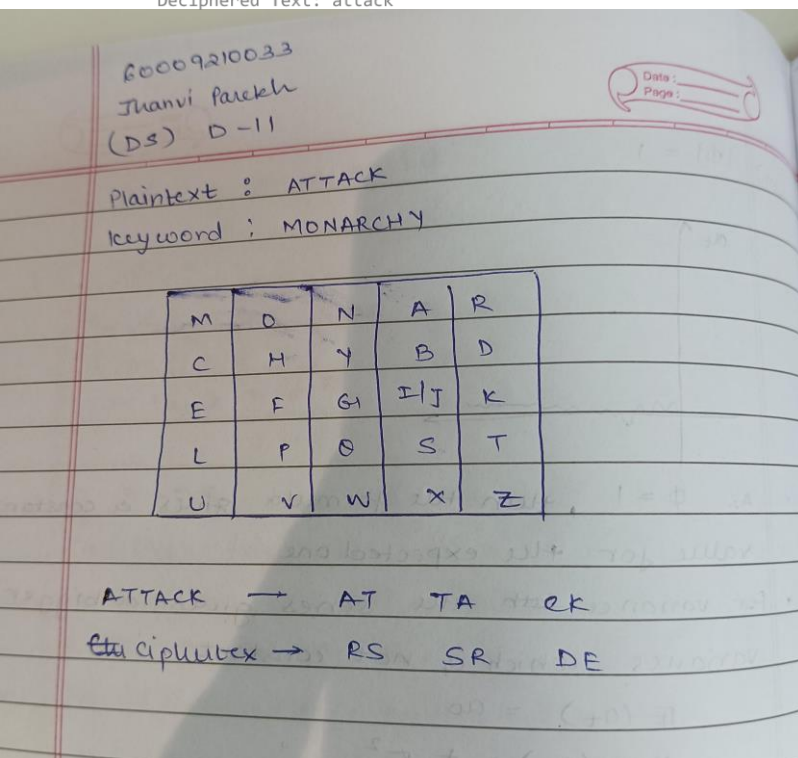 Deciphered Text: attack
60009210033
Jhanvi Parekh
(DS) D-11
Date:
Page:
Plaintext : ATTACK
keyword : MONARCHY
M O N A R
C H Y B D
E F G I/J K
L P Q S T
U V W X Z
ATTACK → AT TA CK
ciphertex → RS SR DE